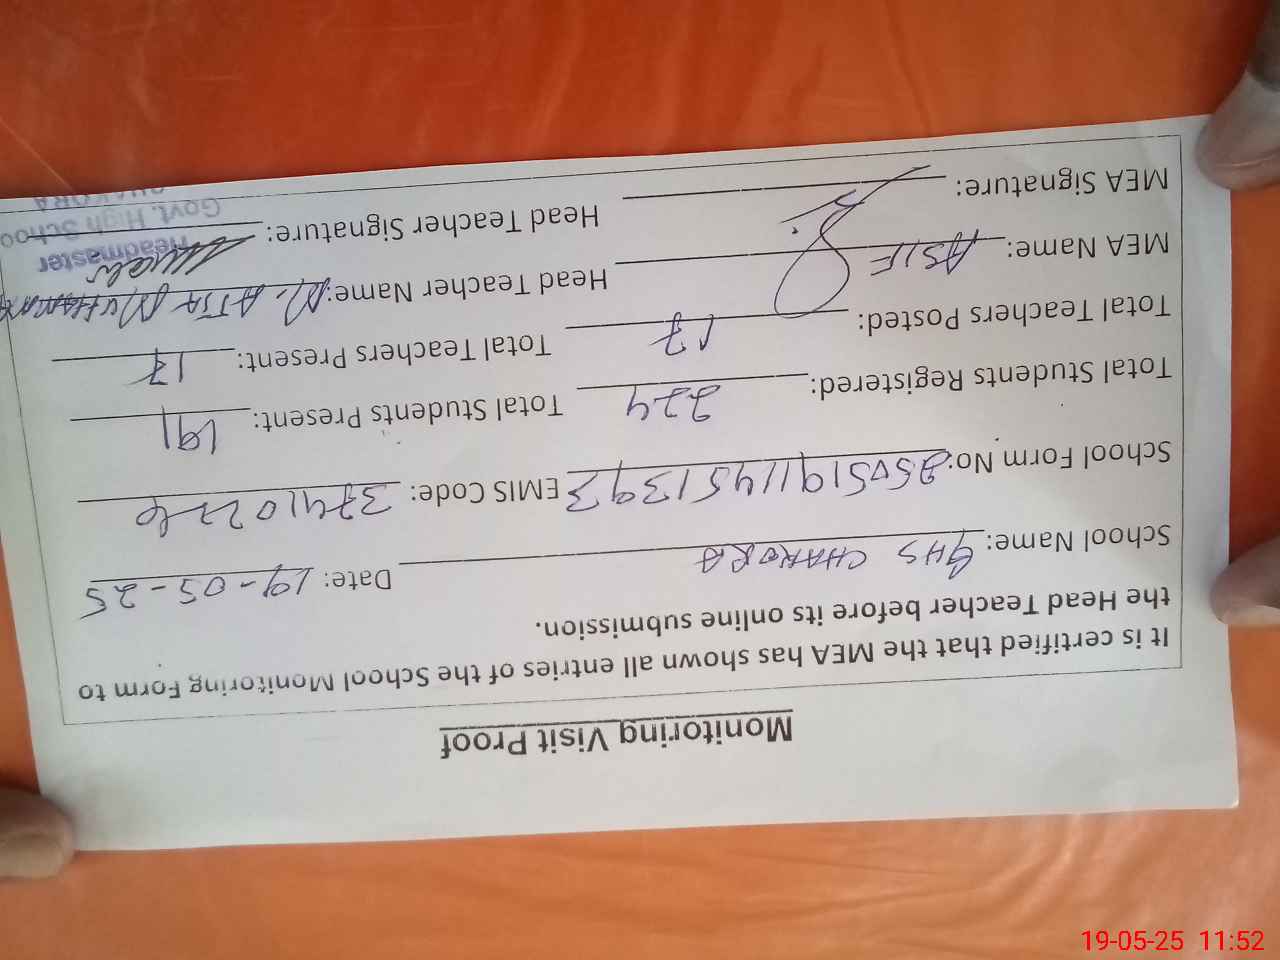 Monitoring Visit Proof
It is certified that the MEA has shown all entries of the School Monitoring Form to
the Head Teacher before its online submission.
School Name: GHS CHAKORA Date: 19-05-25
School Form No: 25051911451393 EMIS Code: 37410226
Total Students Registered: 224 Total Students Present: 191
Total Teachers Posted: 17 Total Teachers Present: 17
MEA Name: ASIF Head Teacher Name: M.
MEA Signature: Head Teacher Signature:
Headmaster
Govt. High School
CHAKORA
19-05-25 11:52